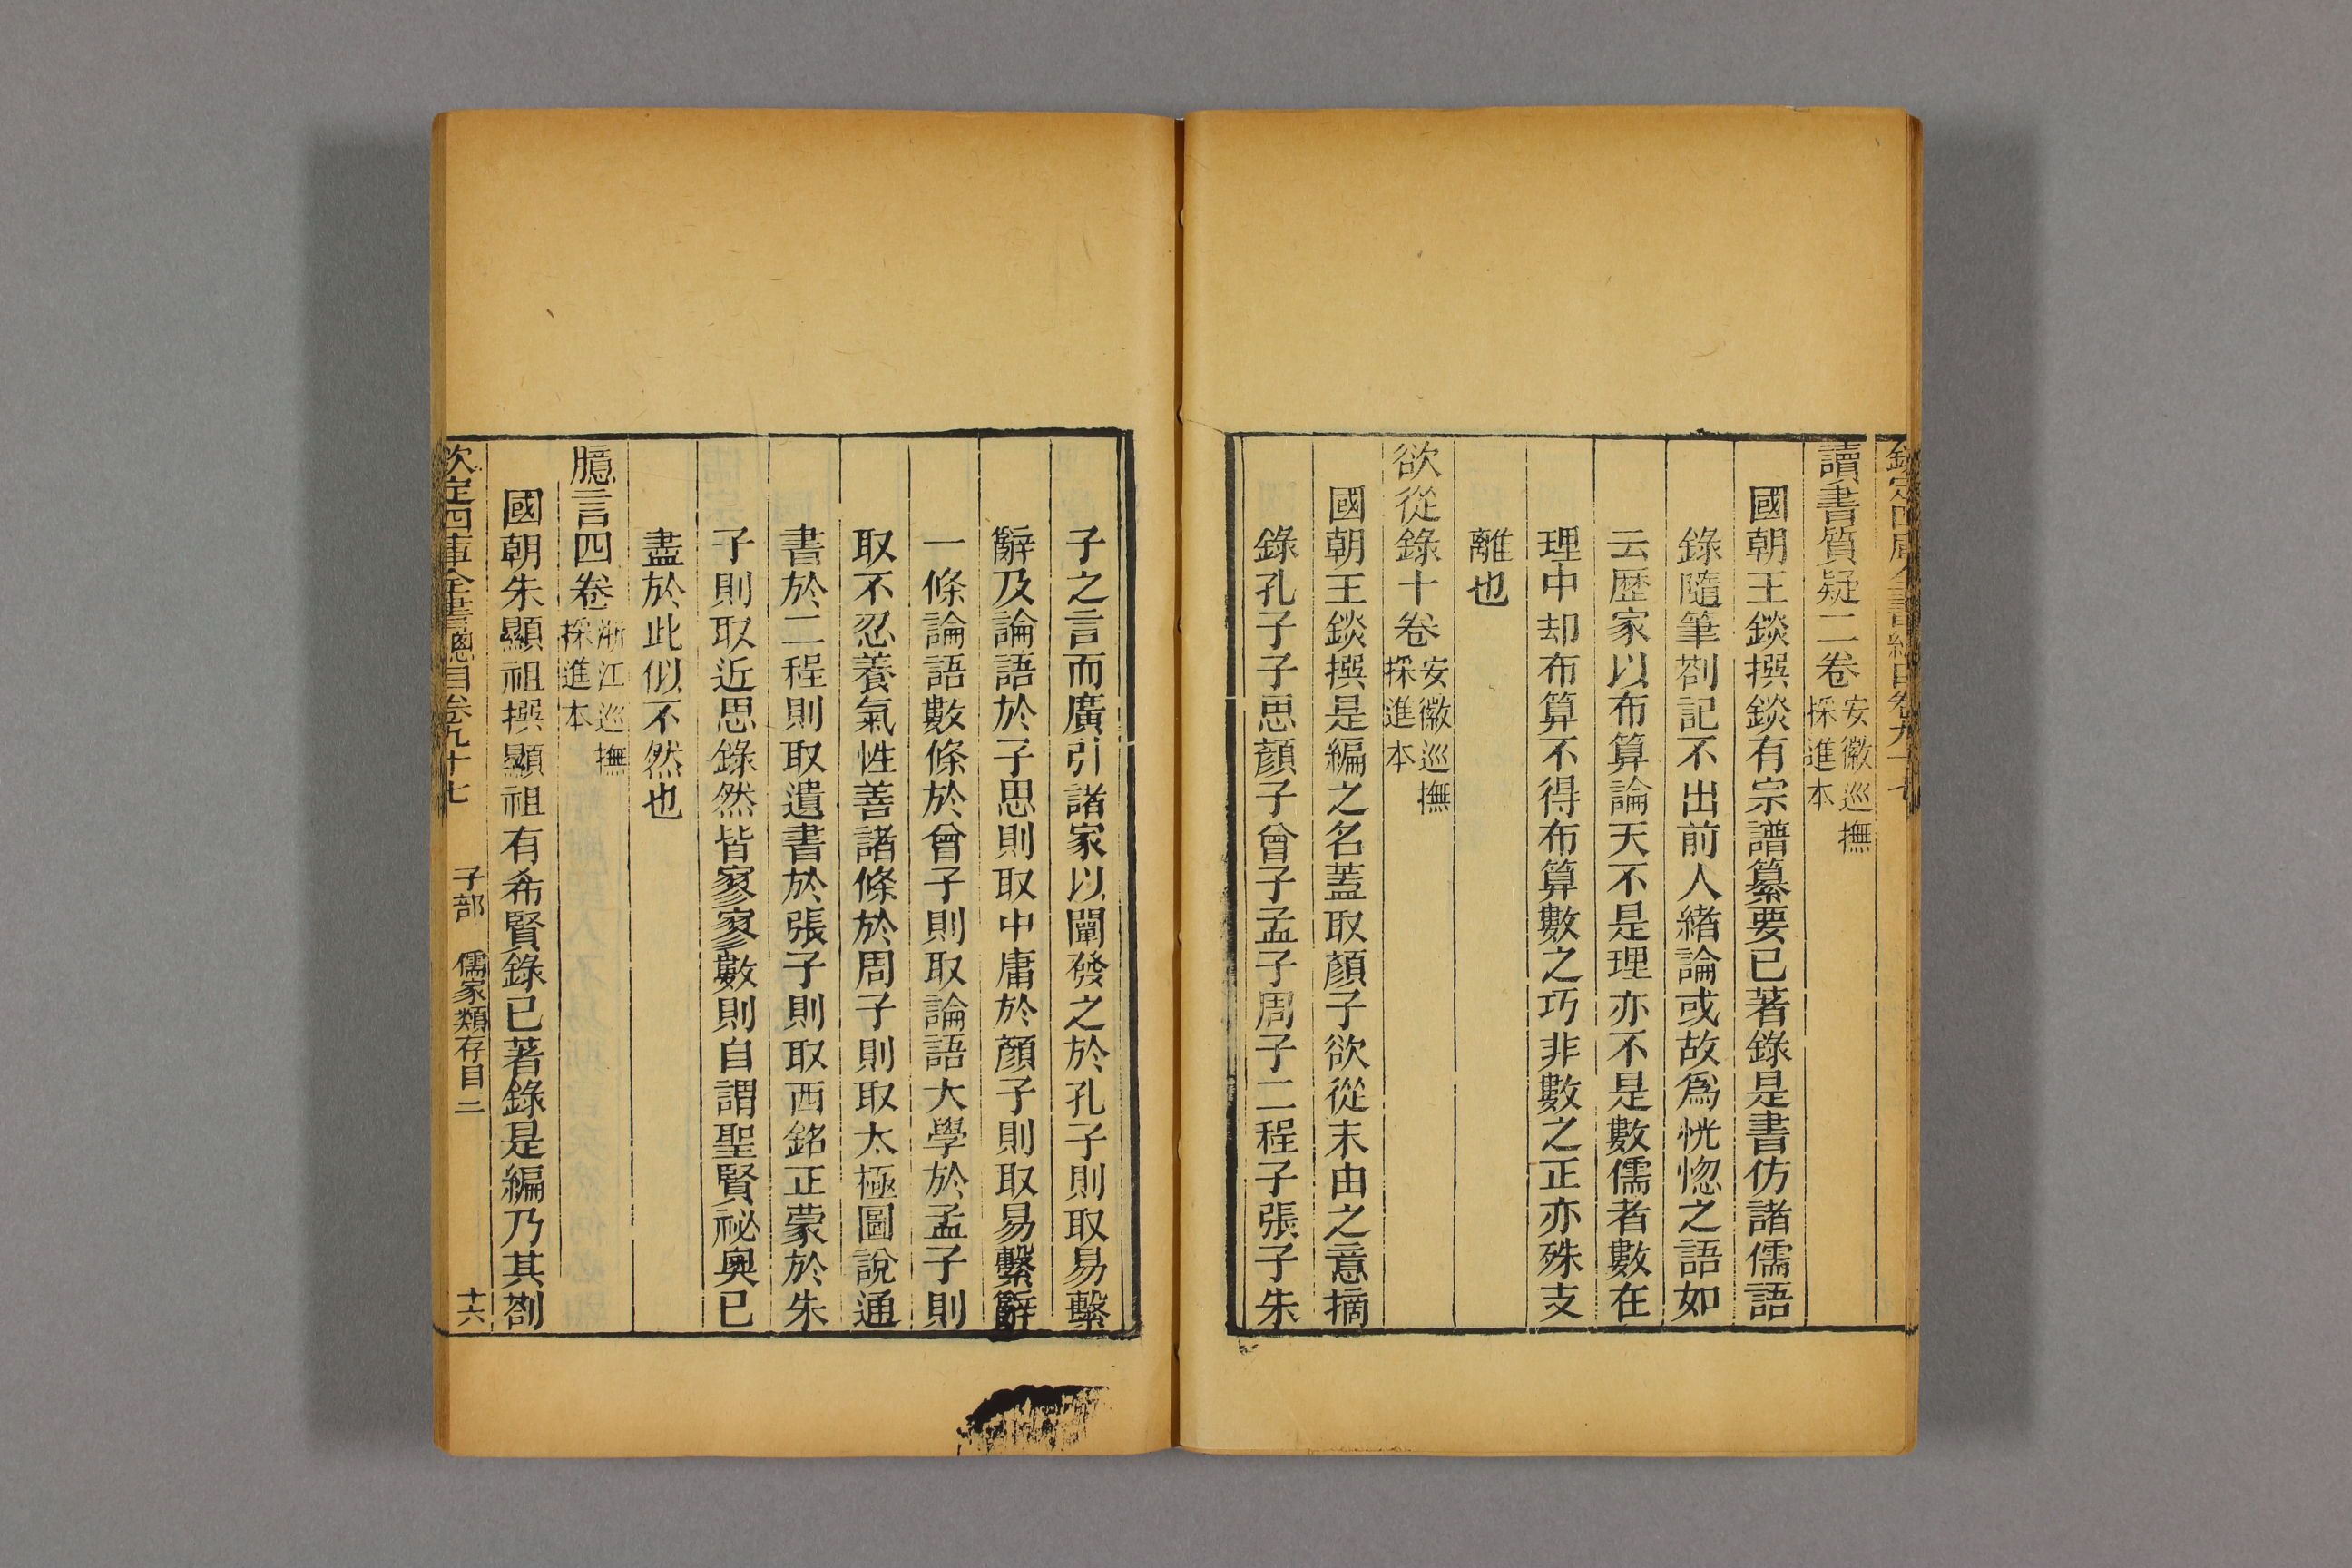 欽定四庫全書總目卷九十七
讀書質疑二卷安徽巡撫採進本
國朝王錟撰錟有宗譜纂要已著錄是書仿諸儒語
錄隨筆劄記不出前人緒論或故爲恍惚之語如
云歷家以布算論天不是理亦不是數儒者數在
理中却布算不得布算數之巧非數之正亦殊支
離也
欲從錄十卷安徽巡撫採進本
國朝王錟撰是編之名蓋取顏子欲從末由之意摘
錄孔子子思顏子曾子孟子周子二程子張子朱
子之言而廣引諸家以闡發之於孔子則取易繫
辭及論語於子思則取中庸於顏子則取易繫辭
一條論語數條於曾子則取論語大學於孟子則
取不忍養氣性善諸條於周子則取太極圖說通
書於二程則取遺書於張子則取西銘正蒙於朱
子則取近思錄然皆寥寥數則自謂聖賢祕奧已
盡於此似不然也
臆言四卷浙江巡撫採進本
國朝朱顯祖撰顯祖有希賢錄已著錄是編乃其劄
欽定四庫全書總目卷九十七 子部 儒家類存目三 十六